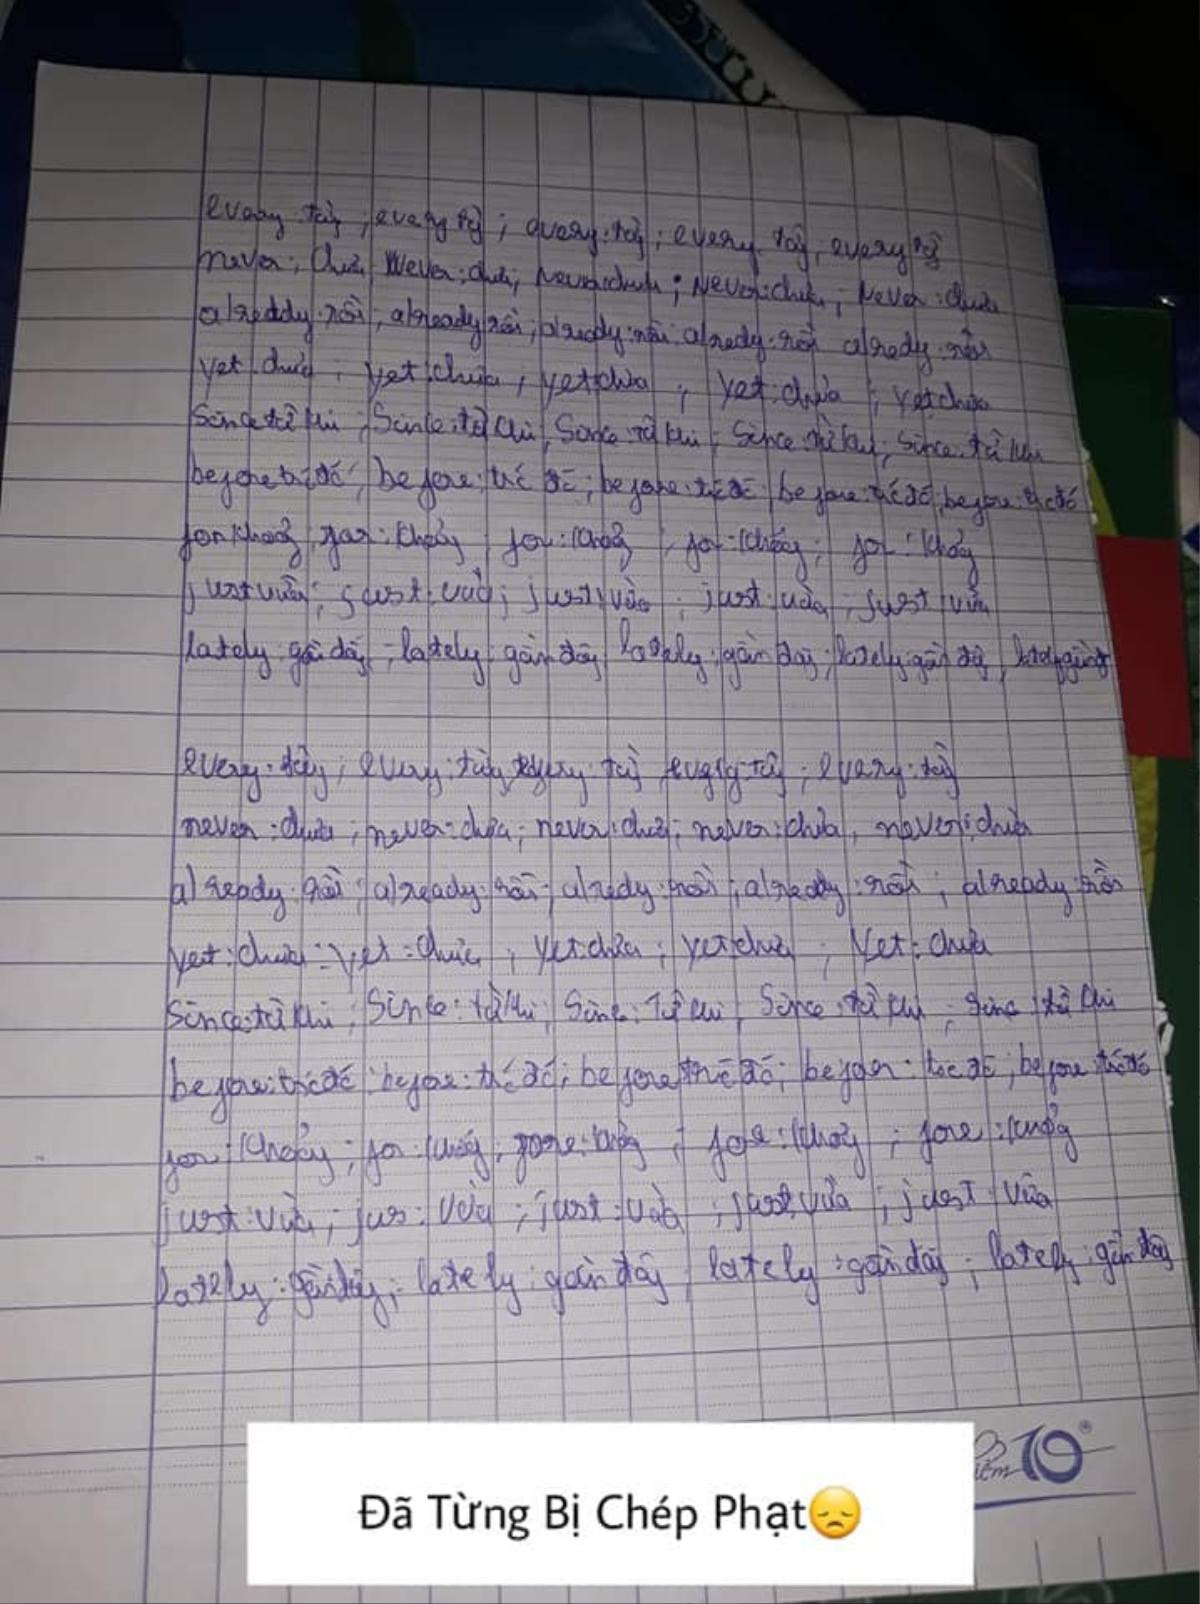 every : từng ; every từng ; every : từng ; every từng , every từng
never ; chưa Never : chưa, Never : chưa ; Never : chưa, Never : chưa
alreddy : rồi , already rồi ; already : rồi already : rồi alredy : rồi
yet chưa ; yet : chưa ; yet chưa ; yet : chưa ; yet chưa
Since từ khi ; Since : từ khi , Since từ khi ; Since : từ khi ; Since . từ khi
before trước đó , before : trước đó ; before : trước đó , before : trước đó , before : trước đó
for khoảng for : khoảng for : khoảng , for : khoảng ; for : khoảng
just vừa ; just vừa ; just vừa ; just : vừa ; just vừa
lately gần đây ; lately gần đây lately : gần đây ; lately gần đây ,
every : từng ; every : từng : từng every từng ; every : từng
never : chưa ; never : chưa ; never : chưa ; never : chưa , never : chưa
already : rồi ; already : rồi ; alredy : rồi ; already : rồi ; already : rồi
yet : chưa ; yet : chưa ; yet : chưa ; yet chưa ; Yet : chưa
Since : từ khi ; Since : từ khi ; Sine : từ khi ; Since : từ khi ; Sinc từ khi
before : trước đó ; before : trước đó ; before trước đó ; : trước đó ; before trước đó
for : khoảng ; for : khoảng ; : khoảng ; for : khoảng ; fore : khoảng
just : vừa ; jus : vừa ; just : vừa ; just vừa ; just : vừa
lately : gần đây ; lately : gần đây lately : gần đây ; lately : gần đây
Điểm 10®
Đã Từng Bị Chép Phạt😞